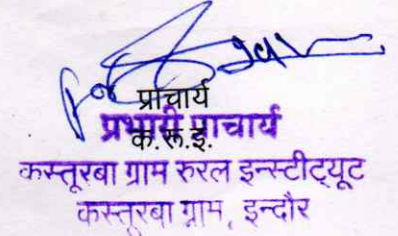 प्राचार्य
प्रभारी प्राचार्य
क.रू.इ.
कस्तूरबा ग्राम रुरल इन्स्टीट्यूट
कस्तूरबा ग्राम, इन्दौर